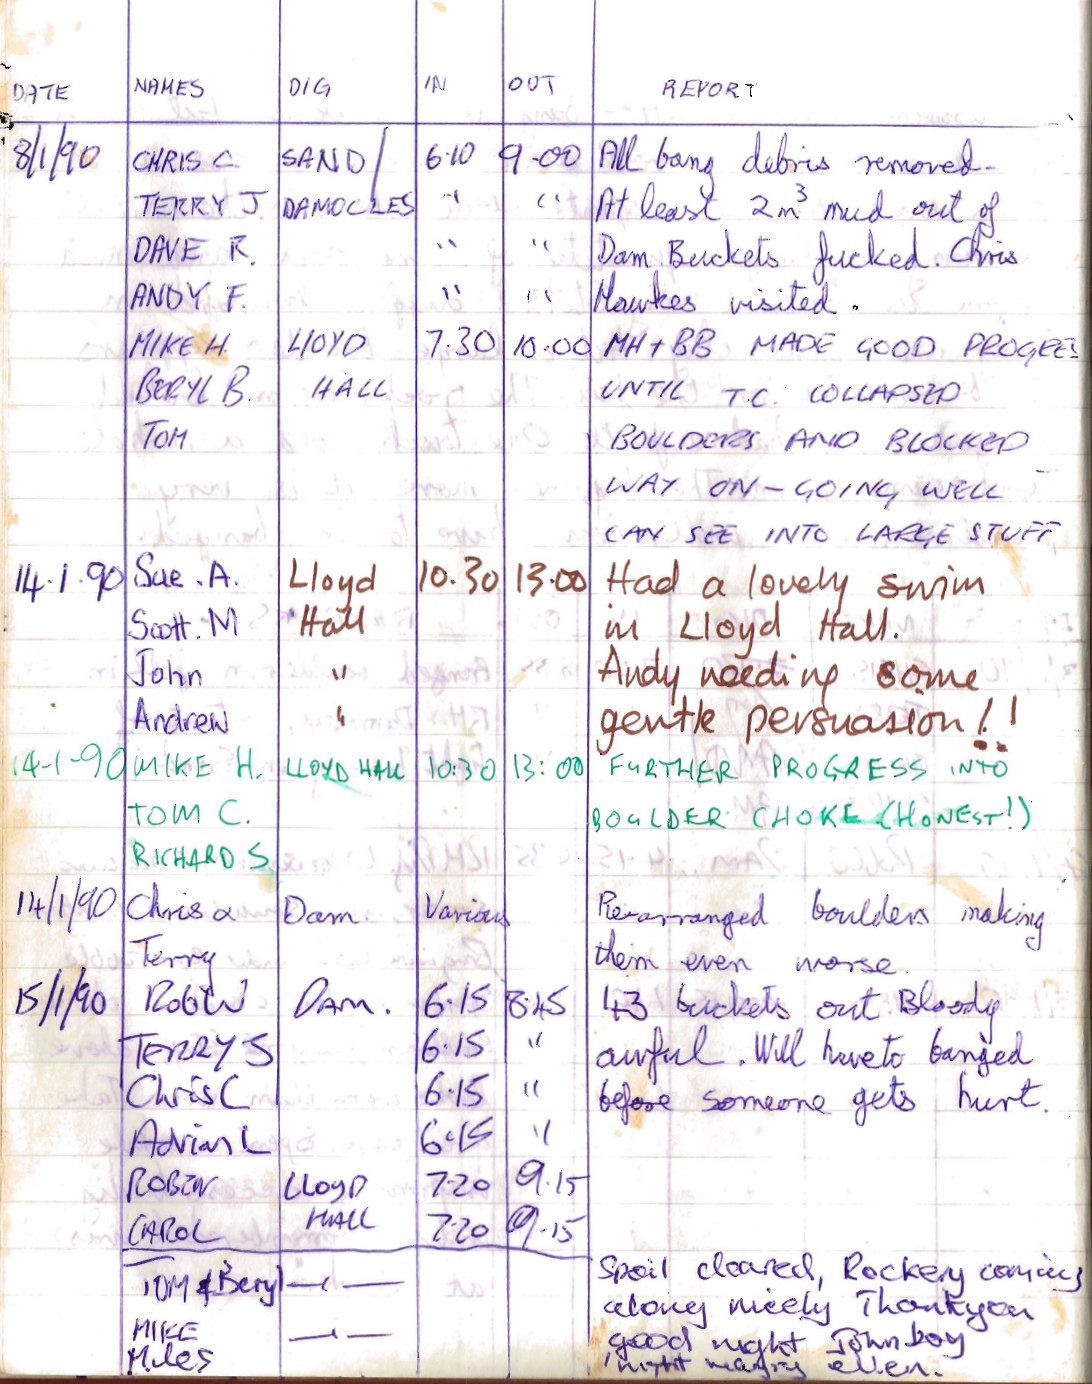 DATE NAMES DIG IN OUT REPORT
8/1/90 CHRIS C. SAND/ 6·10 9·00 All bang debris removed.
TERRY J DAMOCLES " " At least 2m³ mud out of
DAVE R. " " Dam. Buckets fucked. Chris
ANDY F. " " Hawkes visited.
MIKE H. LLOYD 7.30 10.00 MH + BB MADE GOOD PROGRES
BERYL B. HALL UNTIL T.C. COLLAPSED
TOM BOULDERS AND BLOCKED
WAY ON - GOING WELL -
CAN SEE INTO LARGE STUFF
14.1.90 Sue .A. Lloyd 10.30 13.00 Had a lovely swim
Scott. M Hall in Lloyd Hall.
John " Andy needing some
Andrew " gentle persuasion!!
14-1-90 MIKE H. LLOYD HALL 10:30 13:00 FURTHER PROGRESS INTO
TOM C. BOULDER CHOKE (HONEST!)
RICHARD S.
14/1/90 Chris & Dam. Various Re-arranged boulders making
Terry them even worse.
15/1/90 Rob W DAM. 6.15 8.45 43 buckets out Bloody
TERRY S 6.15 " awful. Will have to banged
Chris C 6.15 " before someone gets hurt.
Adrian L 6.15 "
ROBIN LLOYD 7.20 9.15
CAROL HALL 7.20 9.15
TOM & Beryl —"— Spoil cleared, Rockery coming
along nicely Thankyou
MIKE —"— good night John boy
Miles night ellen.